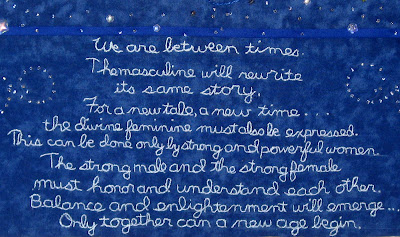 We are between times.
The masculine will rewrite
its same story.
For a new tale, a new time...
the divine feminine must also be expressed.
This can be done only by strong and powerful women
The strong male and the strong female
must honor and understand each other.
Balance and enlightenment will emerge...
Only together can a new age begin.